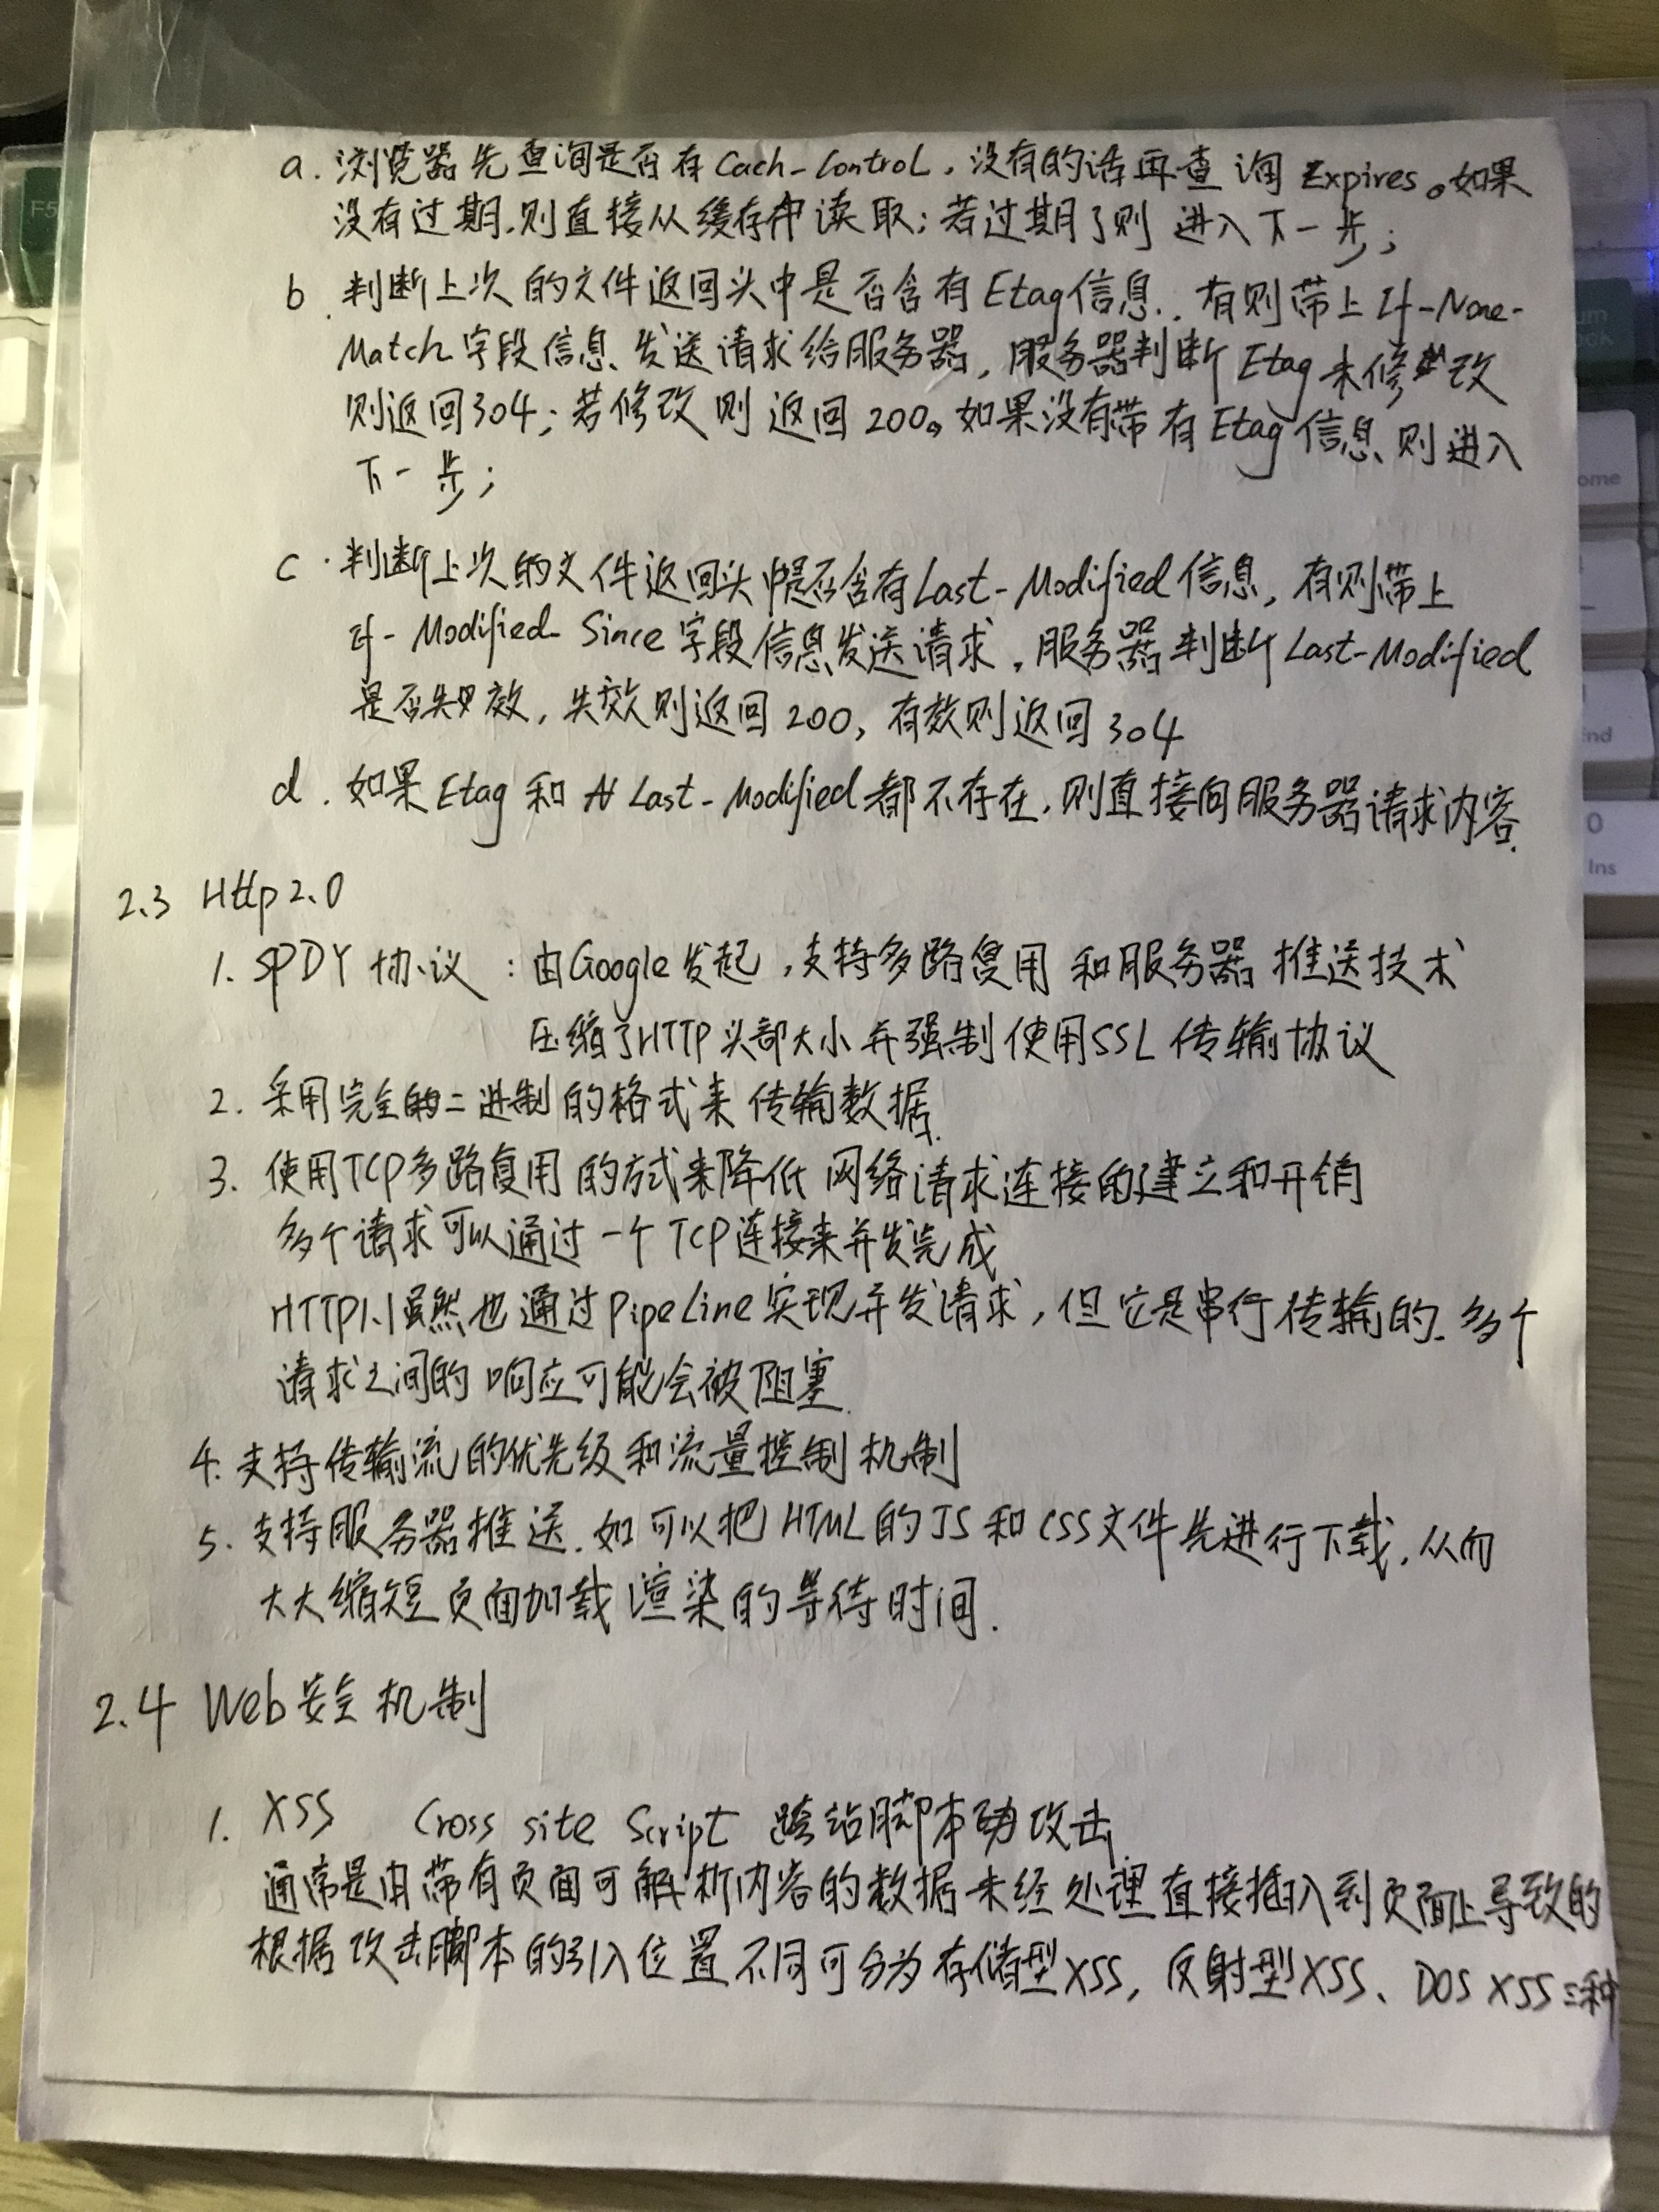 a. 浏览器先查询是否有Cach-Control，没有的话再查询 Expires。如果
没有过期，则直接从缓存中读取；若过期了则 进入下一步；
b. 判断上次的文件返回头中是否含有Etag信息.. 有则带上If-None-
Match字段信息、发送请求给服务器，服务器判断Etag未修改
则返回304；若修改则返回200。如果没有带有Etag信息、则进入
下一步；
c. 判断上次的文件返回头中是否含有Last-Modified信息，有则带上
If-Modified-Since字段信息发送请求，服务器判断Last-Modified
是否失效，失效则返回200，有效则返回304
d. 如果Etag和Last-Modified都不存在，则直接向服务器请求内容.
2.3 Http2.0
1. SPDY协议：由Google发起，支持多路复用和服务器推送技术
压缩了HTTP头部大小并强制使用SSL传输协议
2. 采用完全的二进制的格式来传输数据.
3. 使用TCP多路复用的方式来降低网络请求连接的建立和开销
多个请求可以通过一个TCP连接来并发完成
HTTP1.1虽然也通过PipeLine实现并发请求，但它是串行传输的.多个
请求之间的响应可能会被阻塞.
4. 支持传输流的优先级和流量控制机制
5. 支持服务器推送.如可以把HTML的JS和CSS文件先进行下载，从而
大大缩短页面加载渲染的等待时间.
2.4 Web安全机制
1. XSS Cross site Script 跨站脚本攻击
通常是由带有页面可解析内容的数据未经处理直接插入到页面上导致的
根据攻击脚本的引入位置不同可分为存储型XSS，反射型XSS、DOS XSS三种
F5
ome
End
0
Ins